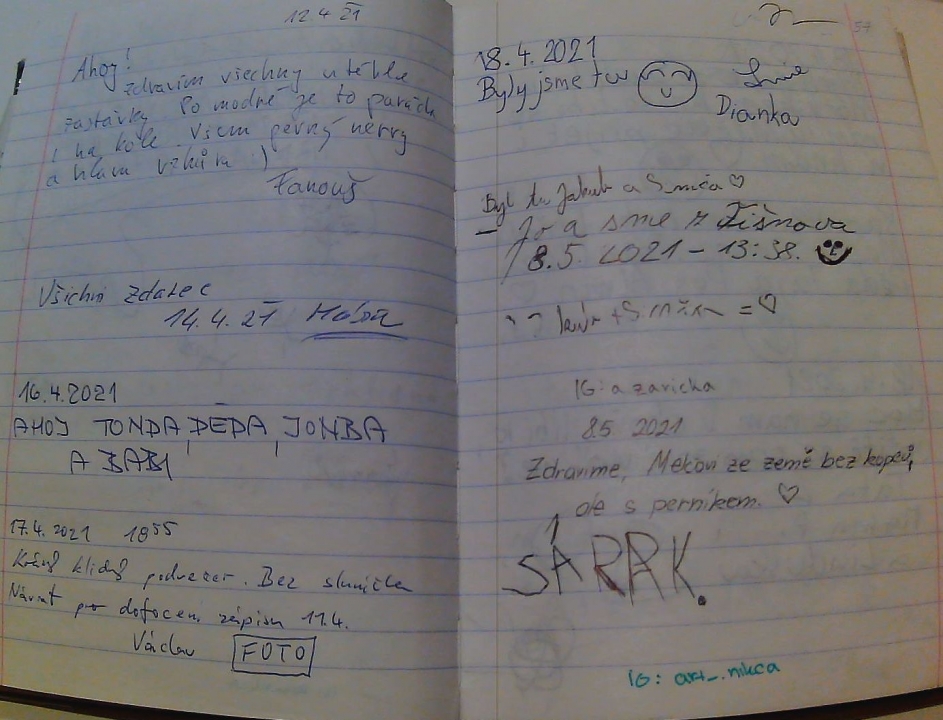 12.4 21
Ahoj!
zdravím všechny u téhle
zastávky Po modné je to paráda
i na kole. Všem pevný nervy
a hlavu vzhůru )
Fanouš
Všichni zdatec
14.4.21
16.4.2021
AHOJ TONDA, DĚDA, JONBA
A BABI
17.4.2021 18 55
Krásný klidný podvečer. Bez sluníčka
Návrat pro dofocení zápisu 11.4.
Václav FOTO
57
18.4.2021
Byly jsme tu
Dianka
Byl tu Jakub a ♡
– Jo a sme z Tišnova
8.5. 2021 – 13:38.
= ♡
IG: a zavicka
8.5. 2021
Zdravíme, Mekov ze země bez kopců,
ale s perníkem. ♡
SÁRRK.
IG: